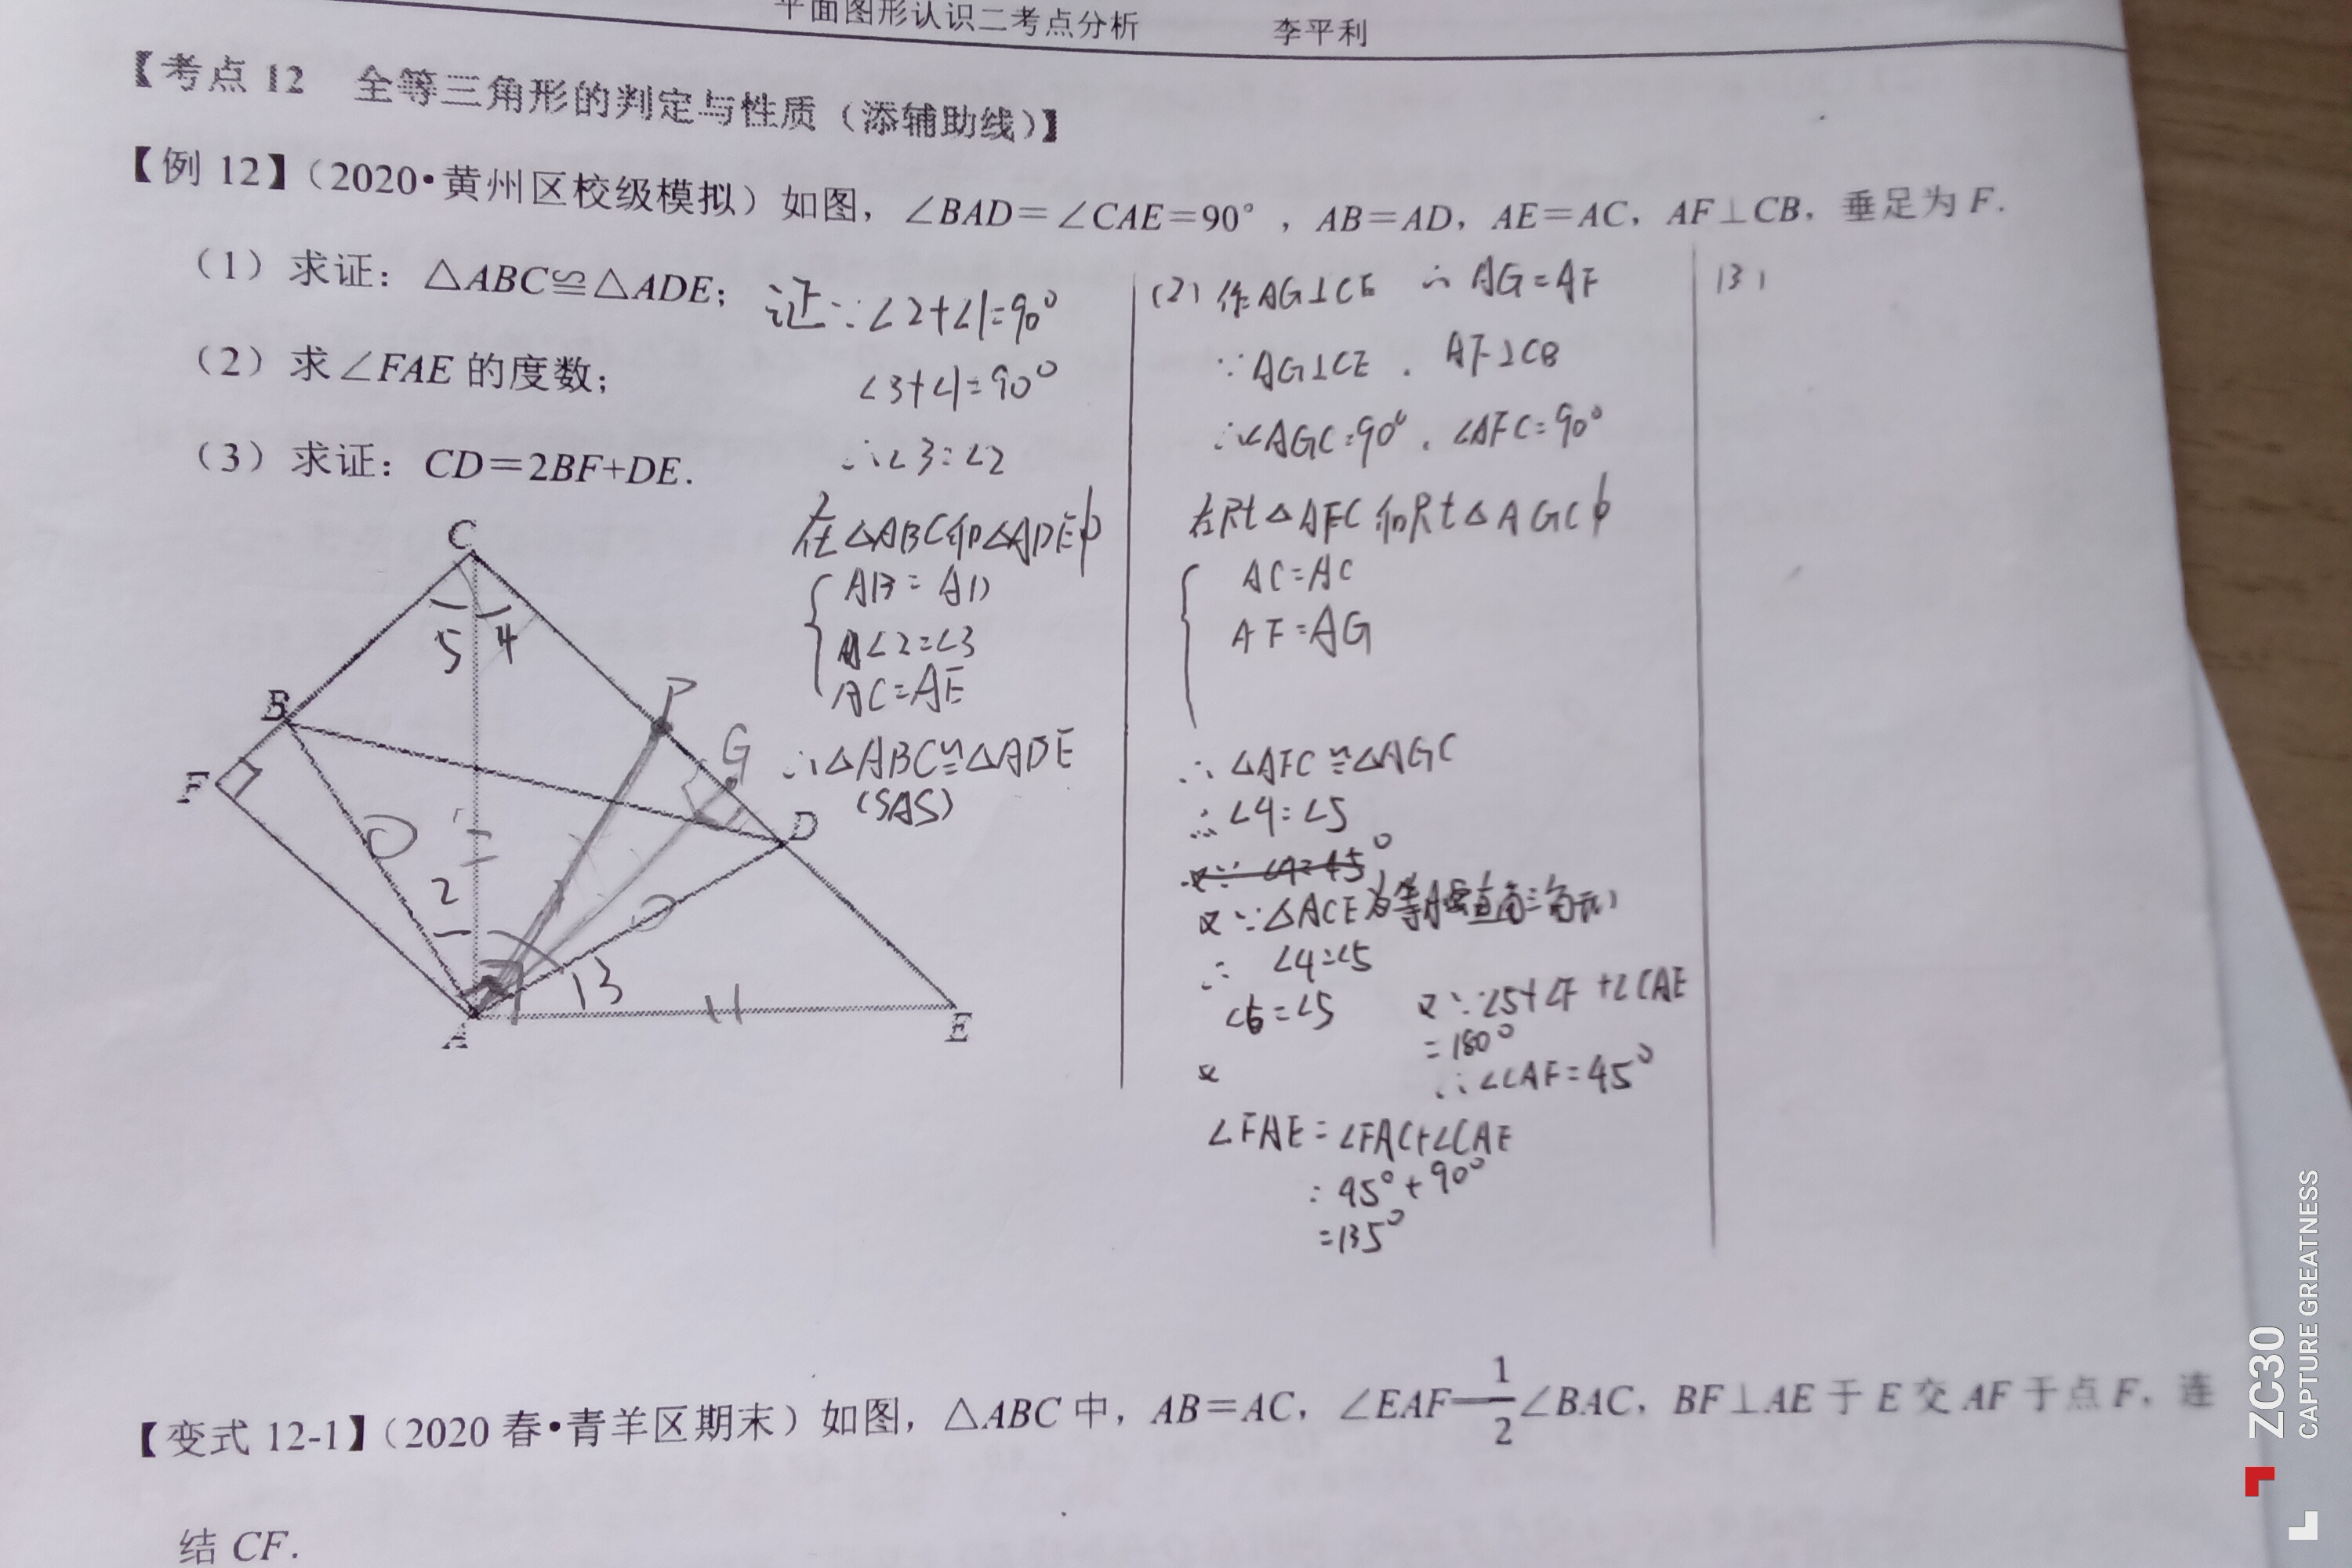 平面图形认识二考点分析 李平利
【考点 12 全等三角形的判定与性质（添辅助线）】
【例 12】（2020•黄州区校级模拟）如图，∠BAD＝∠CAE＝90°，AB＝AD，AE＝AC，AF⊥CB，垂足为 F．
（1）求证：△ABC≌△ADE；
（2）求∠FAE 的度数；
（3）求证：CD＝2BF+DE．
F
B
C
A
D
E
P
G
5
4
2
1
3
证∵∠2+∠1=90°
∠3+∠1=90°
∴∠3=∠2
在△ABC和△ADE中
AB=AD
∠2=∠3
AC=AE
∴△ABC≌△ADE
(SAS)
(2) 作AG⊥CE ∴AG=AF
∵AG⊥CE. AF⊥CB
∴∠AGC=90°.∠AFC=90°
在Rt△AFC和Rt△AGC中
AC=AC
AF=AG
∴△AFC≌△AGC
∴∠4=∠5
又∵△ACE为
∴ ∠4=45
=∠5
又∵∠5+∠F+∠CAF
=180°
∴∠CAF=45°
∠FAE=∠FAC+∠CAE
=45°+90°
=135°
(3)
【变式 12-1】（2020 春•青羊区期末）如图，△ABC 中，AB＝AC，∠EAF═\frac{1}{2}∠BAC，BF⊥AE 于 E 交 AF 于点 F，连
结 CF．
ZC30
CAPTURE GREATNESS